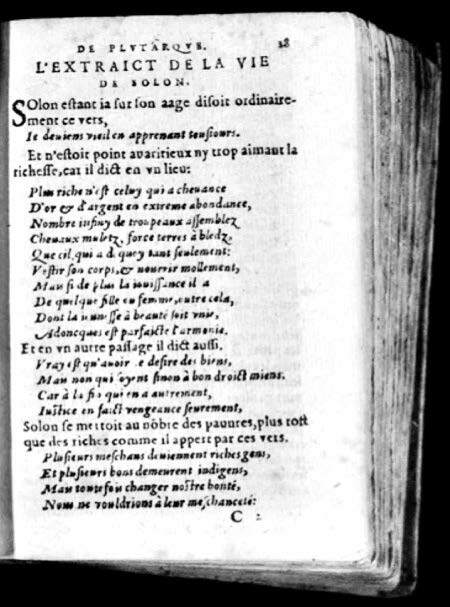 DE PLVTARQVE. 18
L'EXTRAICT DE LA VIE
DE SOLON.
SOlon estant ia sur son aage disoit ordinaire-
ment ce vers,
Ie deuiens vieil en apprenant tousiours.
Et n'estoit point auaritieux ny trop aimant la
richesse, car il dict en vn lieu:
Plus riche n'est celuy qui a cheuance
D'or & d'argent en extreme abondance,
Nombre infiny de troupeaux assemblez
Cheuaux muletz, force terres à bledz,
Que cil, qui a d quoy tant seulement:
Vestir son corps, & nourrir mollement,
Mais si de plus la iouissance il a
De quelque fille ou femme, outre cela,
Dont la ieunesse à beauté soit vnie,
Adoncques est parfaicte l'armonie.
Et en vn autre passage il dict aussi,
Vray est qu'auoir ie desire des biens,
Mais non qui soyent sinon à bon droict miens.
Car à la fin qui en a autrement,
Iustice en faict vengeance seurement,
Solon se mettoit au nõbre des pauures, plus tost
que des riches comme il appert par ces vers.
Plusieurs meschans deuiennent riches gens,
Et plusieurs bons demeurent indigens,
Mais toutefois changer nostre bonté,
Nous ne vouldrions à leur meschanceté:
C 2